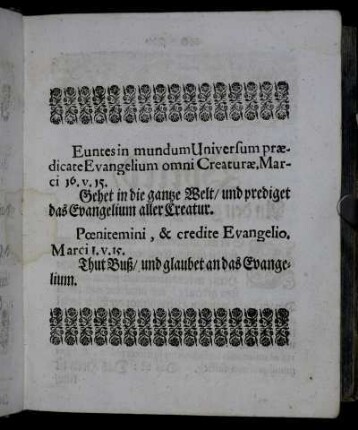 Euntes in mundum Universum præ-
dicate Evangelium omni Creaturæ. Mar-
ci 16. v. 15.
Gehet in die gantze Welt/ und prediget
das Evangelium aller Creatur.
Pœnitemini, & credite Evangelio.
Marci 1. v. 15.
Thut Buß/ und glaubet an das Evange-
lium.